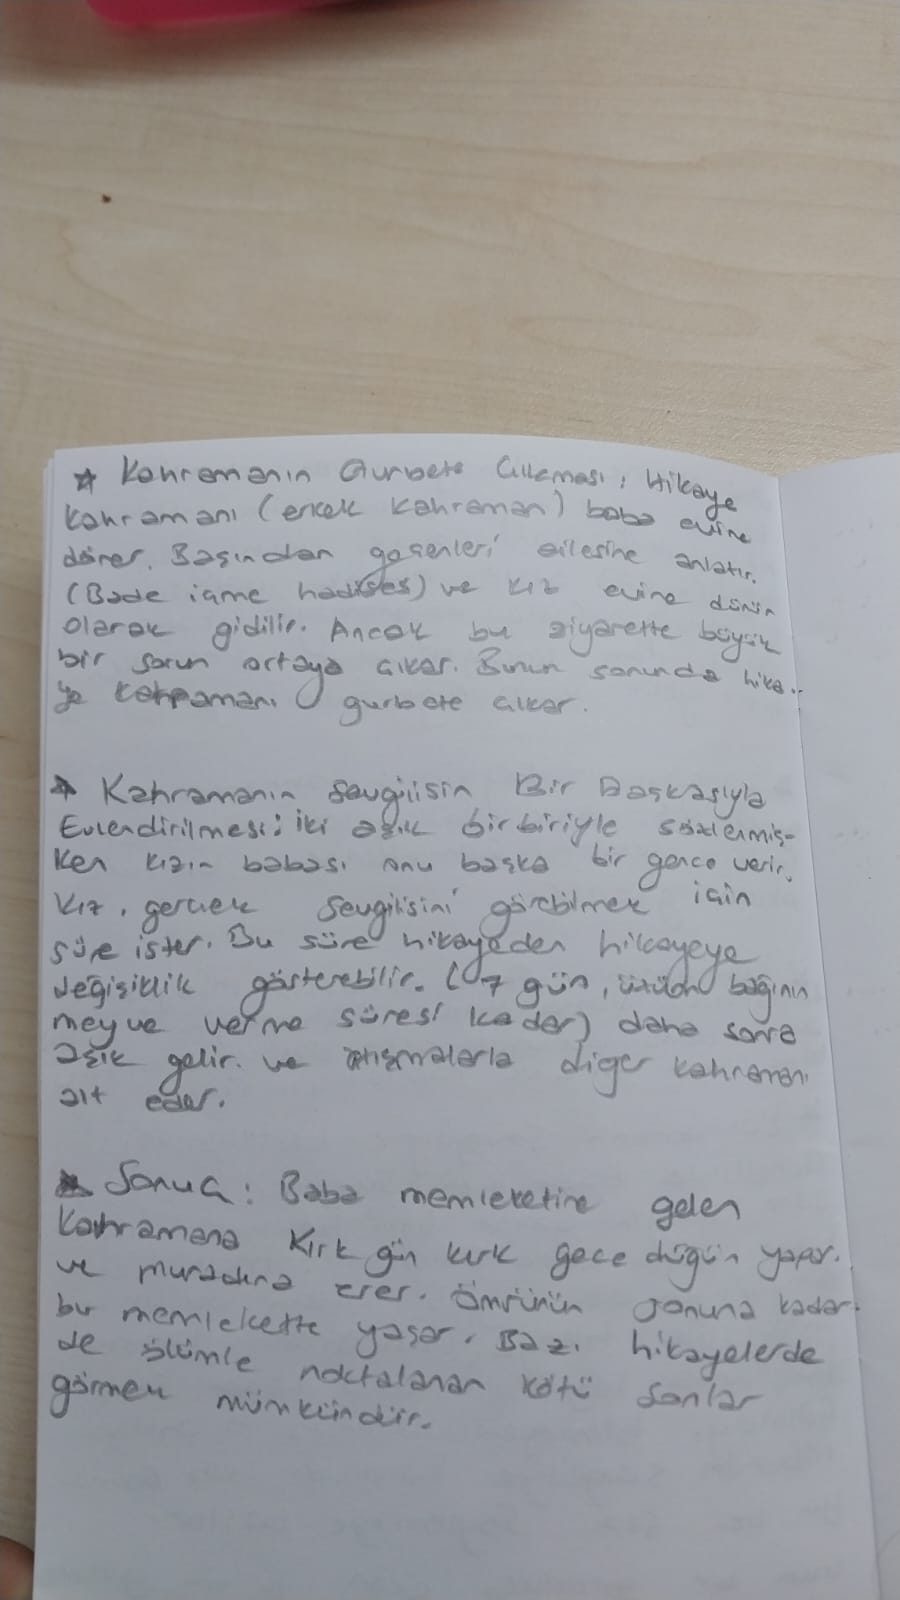 ☆ Kahramanın Gurbete Çıkması: Hikaye
kahramanı (erkek kahraman) baba evine
döner. Başından geçenleri ailesine anlatır.
(Bade içme hadisesi) ve kız evine dünür
olarak gidilir. Ancak bu ziyarette büyük
bir sorun ortaya çıkar. Bunun sonunda hika-
ye kahramanı gurbete çıkar.
☆ Kahramanın Sevgilisin Bir Başkasıyla
Evlendirilmesi: İki aşık birbiriyle sözlenmiş-
ken kızın babası onu başka bir gence verir.
Kız, gerçek sevgilisini görebilmek için
süre ister. Bu süre hikayeden hikayeye
değişiklik gösterebilir. (7 gün, üzüm bağının
meyve verme süresi kadar) daha sonra
aşık gelir. ve atışmalarla diğer kahramanı
alt eder.
☆ Sonuç: Baba memleketine gelen
kahramana kırk gün kırk gece düğün yapar.
ve muradına erer. Ömrünün sonuna kadar
bu memlekette yaşar. Bazı hikayelerde
de ölümle noktalanan kötü sonlar
görmek mümkündür.